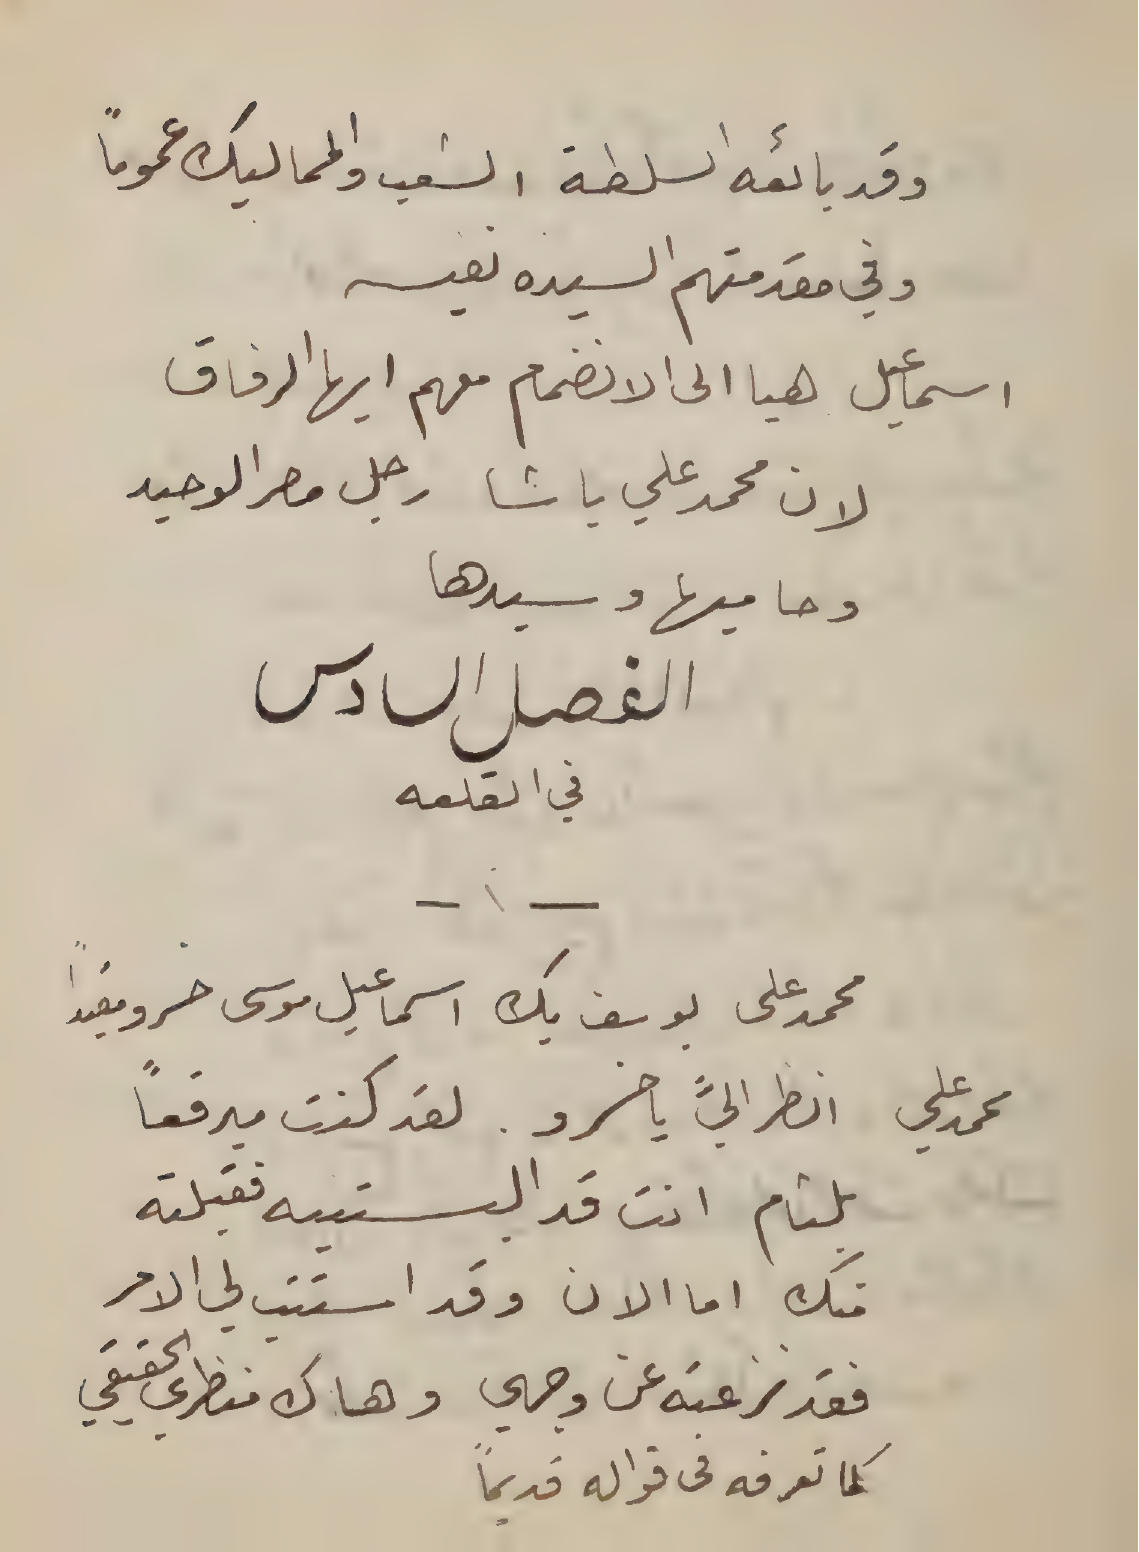 وقد بائعه السلطة الشعب والمماليك عموماً
وفي مقدمتهم السيده نفيسه
اسماعيل هيا الى الانضمام معهم ايها الرفاق
لان محمد علي باشا رجل مصر الوحيد
وحاميها وسيدها
الفصل السادس
في القلعه
— ١ —
محمد على يوسف بك اسماعيل موسى خسرو مقيداً
محمد علي انظر اليَّ يا خسرو . لقد كنت مبرقعاً
بلثام انت قد البستنيه فقبلته
منك اما الان وقد استتب لي الامر
فقد نزعته عن وجهي وهاك منظري الحقيقي
كما تعرفه في قواله قديماً